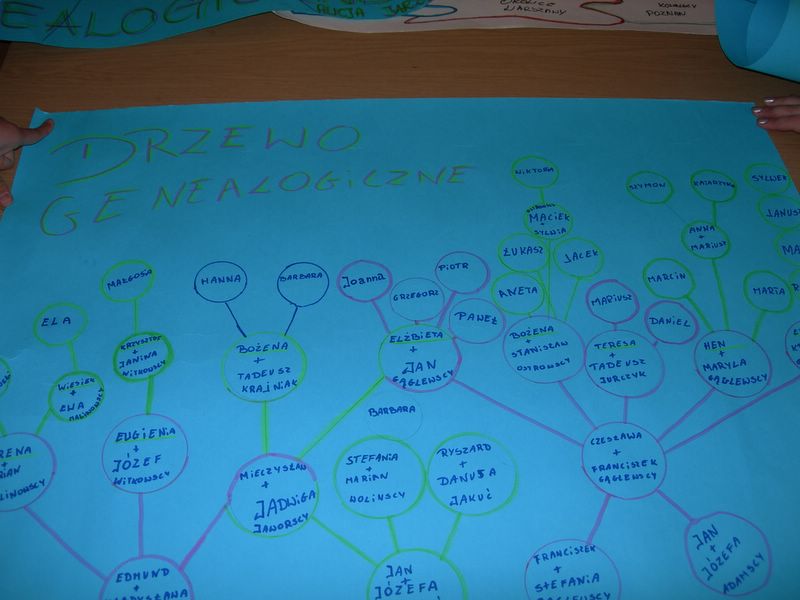 EALOGI
ALICJA
OKOLICE
WARSZAWY
POZNAŃ
DRZEWO
GENEALOGICZNE
WIKTORIA
MACIEK
+
SYLWIA
ŁUKASZ
JACEK
ANETA
SZYMON
KATARZYNA
ANNA
+
MARIUSZ
MARCIN
MARTA
SYLWEK
JANUSZ
MA
MAŁGOSIA
HANNA
BARBARA
Joanna
GRZEGORZ
PIOTR
PAWEŁ
MARIUSZ
DANIEL
ELA
KRZYSZTOF
+
JANINA
WITKOWSCY
WIESIEK
+
EWA
MALINOWSCY
BOŻENA
+
TADEUSZ
KRAJNIAK
ELŻBIETA
+
JAN
GĄGLEWSCY
BOŻENA
+
STANISŁAW
OSTROWSCY
TERESA
+
TADEUSZ
JURCZYK
HEN
+
MARYLA
GĄGLEWSCY
BARBARA
RENA
+
RIAN
LINOWSCY
EUGENIA
+
JÓZEF
WITKOWSCY
MIECZYSŁAW
+
JADWIGA
JAWORSCY
STEFANIA
+
MARIAN
WOLINSCY
RYSZARD
+
DANUTA
JAKUĆ
CZESŁAWA
+
FRANCISZEK
GĄGLEWSCY
EDMUND
+
JAN
+
JÓZEFA
FRANCISZEK
+
STEFANIA
JAN
+
JÓZEFA
ADAMSCY